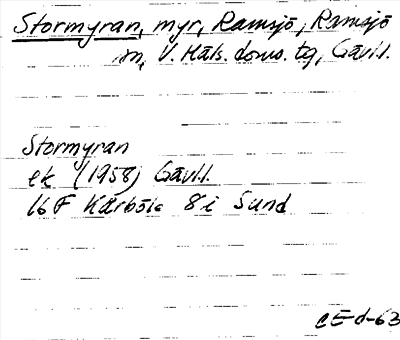 Stormyran, myr, Ramsjö, Ramsjö
sn, V. Häls. doms. tg, Gävl.l.
Stormyran
ek (1958) Gävl.l.
16F Kårböle 8i Sund
CE-d-63